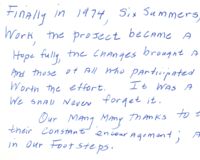 Finally in 1974, Six Summers,
Work, the project became A
Hope fully, the changes brought A
And those of All who participated
Worth the effort. It was A
We shall Never forget it.
Our Many Many thanks to t
their Constant encouragement; A
in Our Foot steps.